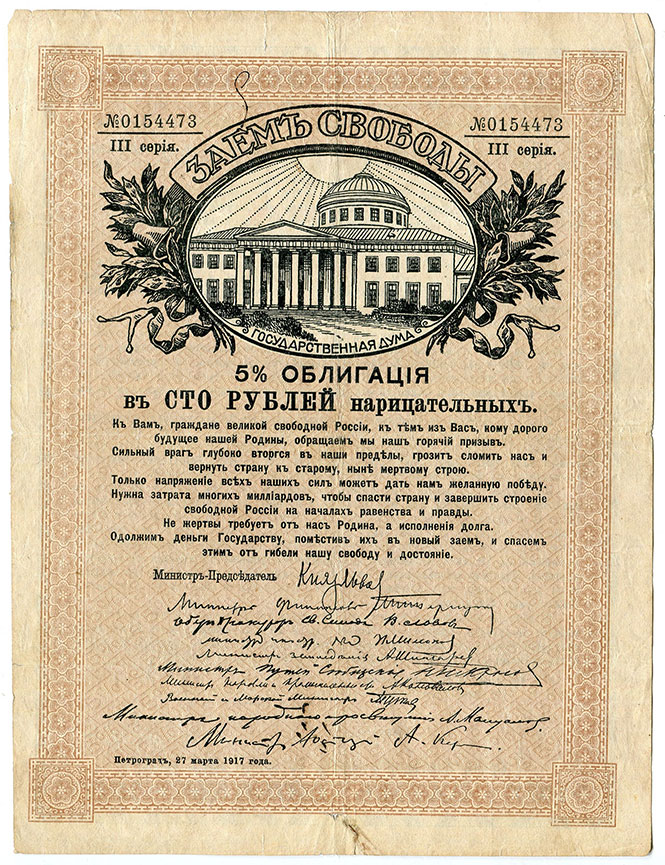 №0154473
III серія.
№0154473
III серія.
ЗАЕМЪ СВОБОДЫ
ГОСУДАРСТВЕННАЯ ДУМА
5% ОБЛИГАЦІЯ
въ СТО РУБЛЕЙ нарицательныхъ.
Къ Вамъ, граждане великой свободной Россіи, къ тѣмъ изъ Васъ, кому дорого
будущее нашей Родины, обращаемъ мы нашъ горячій призывъ.
Сильный врагъ глубоко вторгся въ наши предѣлы, грозитъ сломить насъ и
вернуть страну къ старому, нынѣ мертвому строю.
Только напряженіе всѣхъ нашихъ силъ можетъ дать намъ желанную побѣду.
Нужна затрата многихъ милліардовъ, чтобы спасти страну и завершить строеніе
свободной Россіи на началахъ равенства и правды.
Не жертвы требуетъ отъ насъ Родина, а исполненія долга.
Одолжимъ деньги Государству, помѣстивъ ихъ въ новый заемъ, и спасемъ
этимъ отъ гибели нашу свободу и достояніе.
Министръ-Предсѣдатель Князь Львов
Министръ Финансовъ
Оберъ Прокуроръ Св. Синода В. Львовъ
А. Шингарев
Министръ Путей Сообщенія Н. Некрасов
Министръ Торговли и Промышленности А. Коновалов
Военный и Морской Министръ Гучков
Министръ народнаго просвѣщенія А. Мануйлов
Министръ Юстиціи А. Кер
Петроградъ, 27 марта 1917 года.